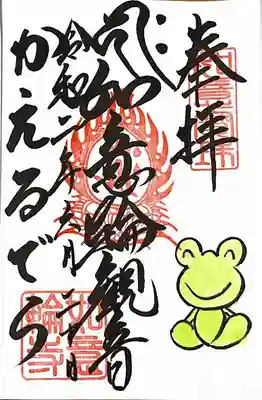 奉拝
如意輪観音
令和二年六月二十日
かえるでら
如意
輪寺